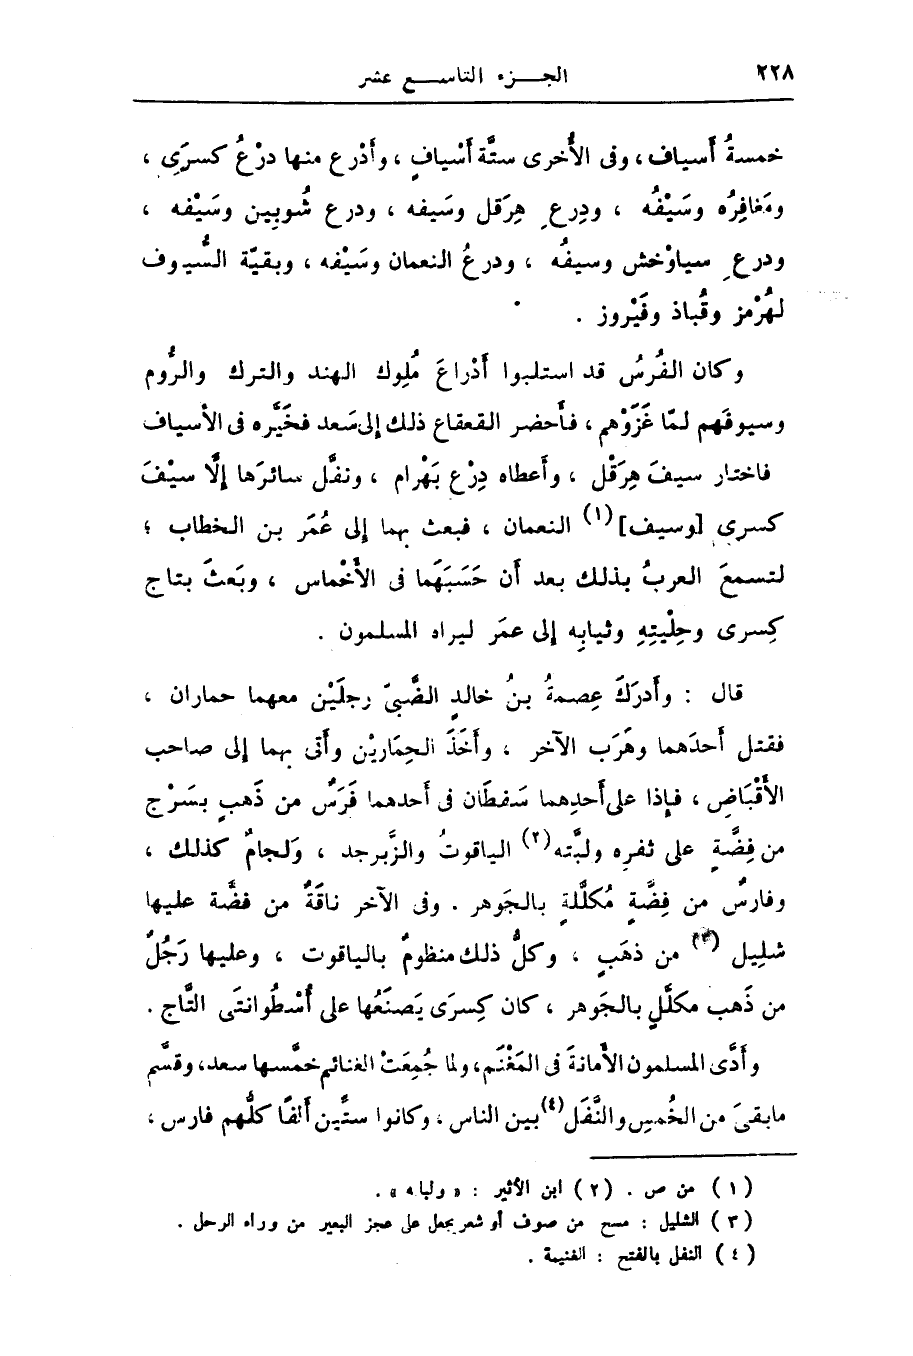 ٢٢٨
الجـــزء التاســـع عشر
خمسةُ أسياف، وفى الأُخرى ستَّة أسْيافٍ، وأدْرع منها درْعُ كسرَى،
ومَغافِرُه وسَيْفُه ، ودِرع هِرَقل وسَيفه ، ودرع شُوبِين وسَيْفه ،
ودرع سياوْخش وسيفُه ، ودرعُ النعمان وسَيْفه ، وبقيّة السُّيوف
لهُرْمز وقُباذ وفَيْروز .
وكان الفُرسُ قد استلبوا أدْراعَ مُلوك الهند والترك والرُّوم
وسيوفَهم لمّا غَزَوْهم ، فأحضر القعقاع ذلك إلى سَعد فخَيَّره فى الأسياف
فاختار سيفَ هِرَقْل ، وأعطاه دِرْع بَهْرام ، ونفَّل سائرَها إلَّا سيْفَ
كسرى [وسيف](١) النعمان ، فبعث بهما إلى عُمَر بن الخطاب ؛
لتسمعَ العربُ بذلك بعد أن حَسَبَهَما فى الأخْماس ، وبَعثَ بتاج
كِسرى وحِلْيتِهِ وثيابِه إلى عمَر ليراه المسلمون .
قال : وأدرَكَ عِصمةُ بنُ خالدٍ الضَّبىّ رجلَيْن معهما حماران ،
فقتل أحدَهما وهَرَب الآخر ، وأخَذَ الحِمَاريْن وأتى بهما إلى صاحب
الأَقْبَاضِ ، فإذا على أحدِهما سَفطَان فى أحدهما فَرَسٌ من ذَهبٍ بسَرْج
من فِضَّةٍ على ثفره ولبَّته(٢) الياقوتُ والزَّبرجد ، وَلجامٌ كذلك ،
وفارسٌ من فِضَّةٍ مُكلَّلةٍ بالجَوهر . وفى الآخر ناقَةٌ من فضَّة عليها
شلِيل (٣) من ذهَبٍ ، وكلُّ ذلك منظومٌ بالياقوت ، وعليها رَجُلٌ
من ذَهب مكلَّلٍ بالجَوهر ، كان كِسرَى يَصنَعُها على أُسْطُوانتَى التَّاج .
وأدَّى المسلمون الأمانةَ فى المَغْنَم، ولما جُمِعَتْ الغنائم خمَّسها سعد، وقسَّم
مابقىَ من الخُمسِ والنَّفَل(٤) بين الناس ، وكانوا ستَّين ألفًا كلُّهم فارس ،
(١) من ص . (٢) ابن الأثير : « ولباه » .
(٣) الشليل : مسح من صوف أو شعر يجعل على عجز البعير من وراء الرحل .
(٤) النفل بالفتح : الغنيمة .